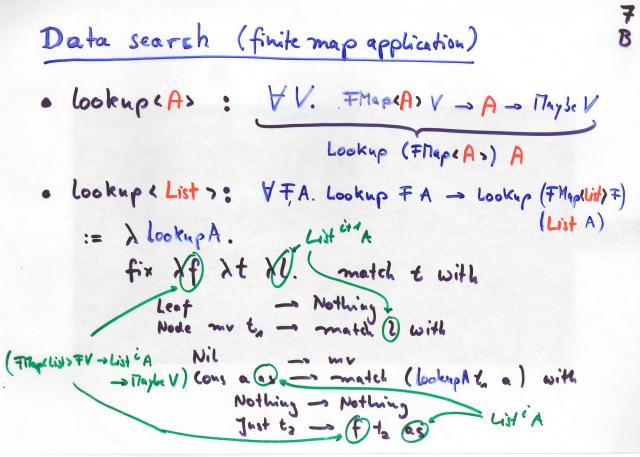 7
B
Data search (finite map application)
• lookup<A> : ∀V. FMap<A> V → A → Maybe V
Lookup (FMap<A>) A
• lookup<List>: ∀F,A. Lookup F A → Lookup (FMap<List> F)
(List A)
:= λ lookupA. List^{i+1} A
fix λf λt λl. match t with
Leaf → Nothing
Node mv t₁ → match l with
(FMap<List> F V → List^i A
→ Maybe V)
Nil → mv
Cons a as → match (lookupA t₁ a) with
Nothing → Nothing
Just t₂ → f t₂ as
List^i A